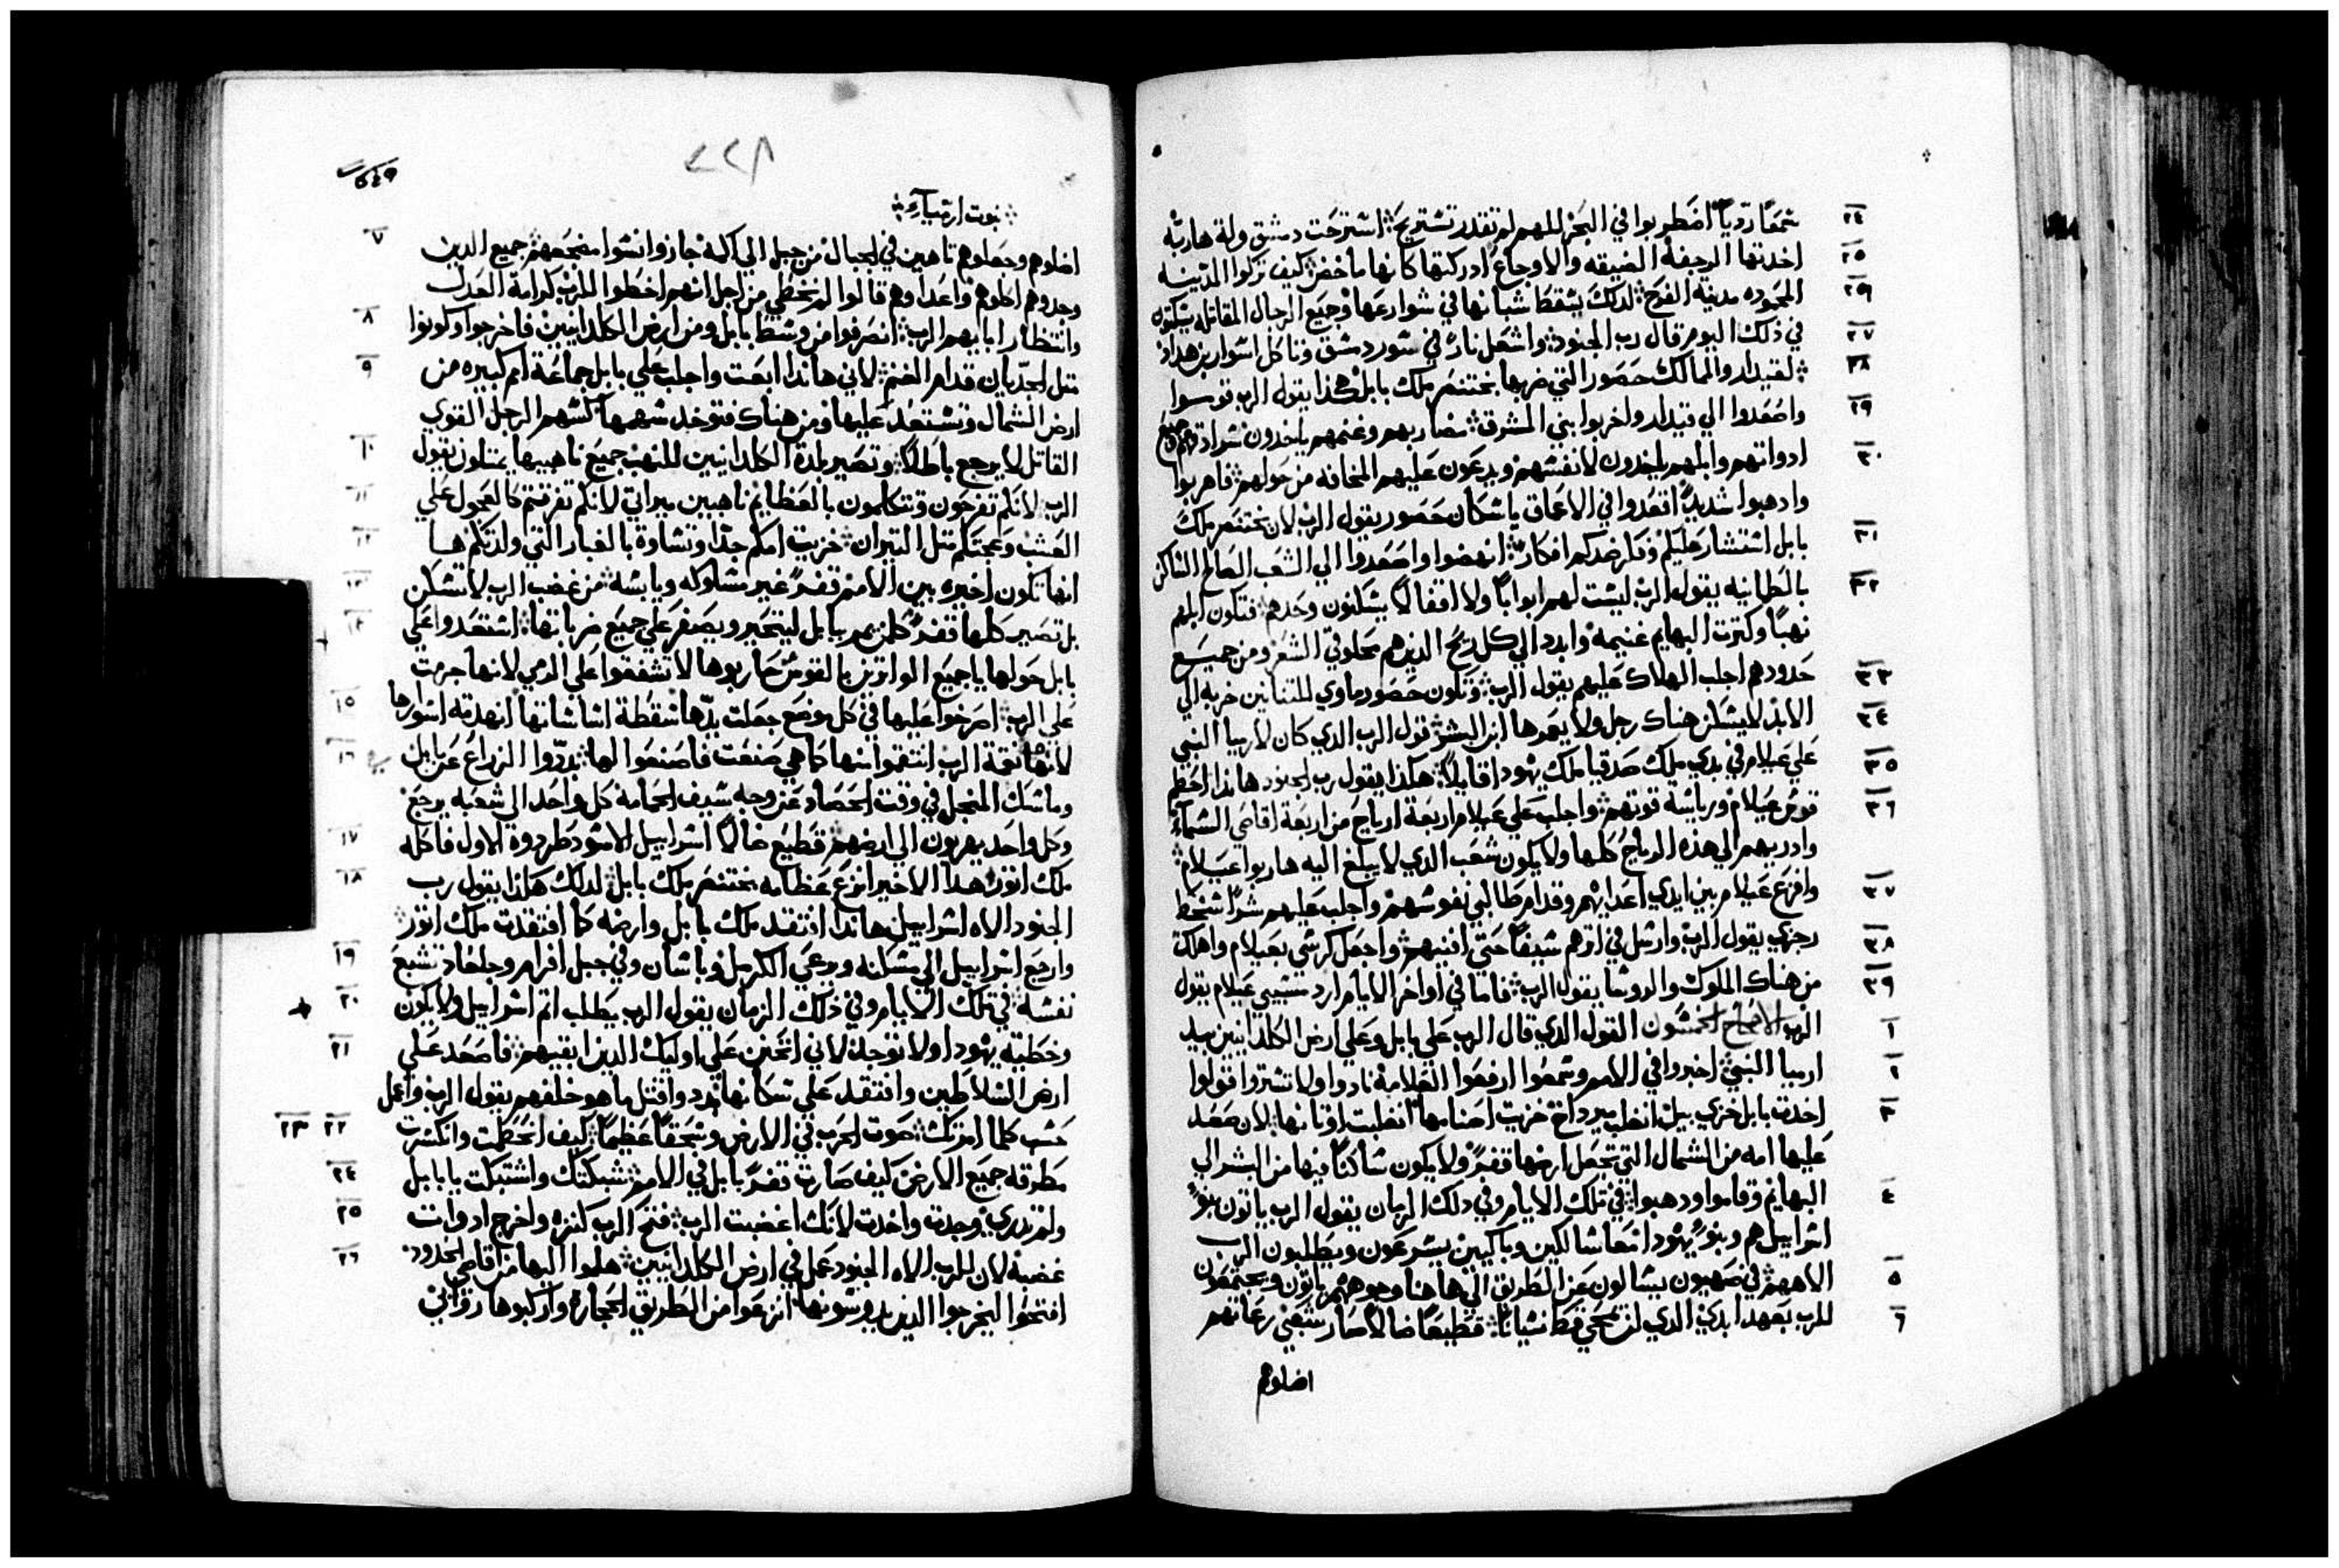 ٢٤ سمعًا رديًا اضطربوا في البحر للهم لم تقدر تستريح؞ استرخت دمشق ولة هاربة
٢٥ اخدتها الرجفة الضيقه والاوجاع ادركتها كانها ماخض؞ كيف تركوا المدينه
٢٦ المحموده مدينة الفرح؞ لدلك يسقط شبانها في شوارعها وجميع الرجال المقاتله يسكتون
٢٧ في دلك اليوم قال رب الجنود؞ واشعل نارًا في سور دمشق وتاكل اسوار بن هداد
٢٨ ؞ لقيدار والممالك حصور التي ضربها بختنصر ملك بابل هكذا يقول الرب قوموا
٢٩ واصعدوا الي قيدار واخربوا بني المشرق؞ مضاربهم وغنمهم ياخدون شرادقهم وجميع
٣٠ ادواتهم وابلهم ياخدون لانفسهم ويدعون عليهم المخافه من حولهم؞ فاهربوا
وادهبوا شديدًا اقعدوا في الاعماق ياسكان حصور يقول الرب لان بختنصر ملك
٣١ بابل استشار عليكم وفكر ضدكم افكارًا؞ انهضوا واصعدوا الي الشعب السالم الساكن
٣٢ بالطمانيه يقول الرب ليست لهم ابوابًا ولا اقفالًا يسكنون وحدهم؞ فتكون ابلهم
نهبًا وكترت البهايم غنيمة وابددد الي كل ريح الذين هم محلوقي الشعر ومن جميع
٣٣ حدودهم اجلب الهلاك عليهم يقول الرب؞ وتكون حصور ماوي للتنانين خربة الي
٣٤ الابد لا يسكن هناك رجل ولا يعودها ابن البشر؞ قول الرب الدي كان لارميا النبي
٣٥ علي عيلام في بدي ملك صدقيا ملك يهودا قايلًا؞ هكذا يقول رب الجنود هاندا احطم
٣٦ قوس عيلام ورياسة قوتهم؞ واجلب علي عيلام اربعة ارياح من اربعة اقاصي السماء
وادريهم الي هذه الرياح كلها ولا يكون شعب الدي لا يبلغ اليه هاربوا عيلام؞
٣٧ وافزع عيلام بين ايدي اعدايهم وقدام طالبي نفوسهم واجلب عليهم شرًا سخط
٣٨ رجزي يقول الرب وارسل في اترهم سيفًا حتي افنيهم؞ واجعل كرسي بعيلام واهلك
٣٩ من هناك الملوك والروسا يقول الرب؞ فاما في اواخر الايام ارد سبي عيلام يقول
١ الرب الاصحاح الخمسون القول الدي قال الرب علي بابل وعلي ارض الكلدانيين بيد
٢ ارميا النبي؞ اخبروا في الامم وسمعوا ارفعوا العلامة نادوا ولا تستروا قولوا
٣ اخدت بابل خزي بيل انغلب ميروداخ خزيت اصنامها انغلبت اوتانها؞ لان صعد
عليها امه من الشمال التي تجعل ارضها قفرًا ولا يكون ساكنًا فيها من البشر الي
٤ البهايم وقاموا ودهبوا؞ في تلك الايام وفي دلك الزمان يقول الرب ياتون بنو
اسراييل هم وبنو يهودا معًا سالكين وباكيين يسرعون ويطلبون الرب
٥ الاههم؞ في صهيون يسالون عن الطريق الي هاهنا وجوههم ياتون ويجتمعون
٦ للرب بعهد ابدي الدي لن يمحي قط نسيانًا؞ قطيعًا ضالًا صار شعبي رعاتهم
اضلوهم
٢٢٨
؞ نبوت ارميآء ؞
اضلوهم وجعلوهم تاهين في الجبال من جبل الي اكمة جازوا نسوا مضجعهم؞ جميع الدين ٧
وجدوهم اكلوهم واعداوهم قالوا لم نخطي من اجل انهم اخطوا للرب كرامة العدل
وانتظار ابايهم الرب؞ انصرفوا من وسط بابل ومن ارض الكلدانيين فاخرجوا وكونوا ٨
متل الجديان قدام الغنم؞ لاني هاندا ابعت واجلب علي بابل جماعة امم كبيره من ٩
ارض الشمال وتستعد عليها ومن هناك فتوخد سهمها كسهم الرجل القوي
القاتل لا يرجع باطلًا؞ وتصير بلدة الكلدانيين للنهب جميع ناهبيها يمتلون يقول ١٠
الرب؞ لانكم تفرحون وتتكلمون بالعظايم ناهبين ميراتي لانكم تفرقتم كالعجول علي ١١
العشب وعجتكم متل التيران؞ خزيت امكم جدًا وتساوة بالغبار التي ولدتكم ها ١٢
انها تكون اخيره بين الامم قفرًا غير مسلوكه ويابسة؞ من غضب الرب لا تسكن ١٣
بل تصير كلها قفرًا كلمن يمر ببابل ليتحير ويصفر علي جميع ضرباتها؞ استعدوا علي ١٤
بابل حولها يا جميع الواترين بالقوس حاربوها لا تشفقوا علي الرمي لانها اجرمت
علي الرب؞ اصرخوا عليها في كل موضع جعلت يدها سقطة اساساتها انهدمة اسورها ١٥
لانها نقمة الرب انتقموا منها كما هي صنعت فاصنعوا لها؞ بددوا الزراع عن بابل ١٦
وماسك المنجل في وقت الحصاد عن وجه سيف الحمامة كل واحد الي شعبه يرجع
وكل واحد يهربون الي ارضهم؞ قطيع ضالًا اسراييل الاسود طردوه الاول فاكله ١٧
ملك اتور هدا الاخير انزع عظامه بختنصر ملك بابل؞ لدلك هكذا يقول رب ١٨
الجنود الاه اسراييل هاندا افتقد ملك بابل وارضه كما افتقدت ملك اتور؞
وارجع اسراييل الي مسكنه ويرعي الكرمل وباسان وفي جبل افرام وجلعاد تشبع ١٩
نفسه؞ في تلك الايام وفي دلك الزمان يقول الرب يطلب اتم اسراييل ولا يكون ٢٠
وخطية يهودا ولا توجد؞ لاني اتحنن علي اوليك الدين ابقيهم؞ فاصعد علي ٢١
ارض السلاطين وافتقد علي سكانها بدد واقتل ما هو خلفهم يقول الرب واعمل
حسب كلما امرتك؞ صوت الحرب في الارض وسحقًا عظيمًا؞ كيف انحطمت وانكسرت ٢٢ ٢٣
مطرقة جميع الارض كيف صارت قفرًا بابل في الامم؞ شبكتك واشتبكت يا بابل ٢٤
ولم تدري وجدت واخدت لانك اغضبت الرب؞ فتح الرب كنزه واخرج ادوات ٢٥
غضبة لان للرب الاه الجنود عمل في ارض الكلدانيين؞ هلموا اليها من اقاصي الحدود ٢٦
افتحوا ليخرجوا الدين يدوسونها انزعوا من الطريق الحجارة واركبوها روابي